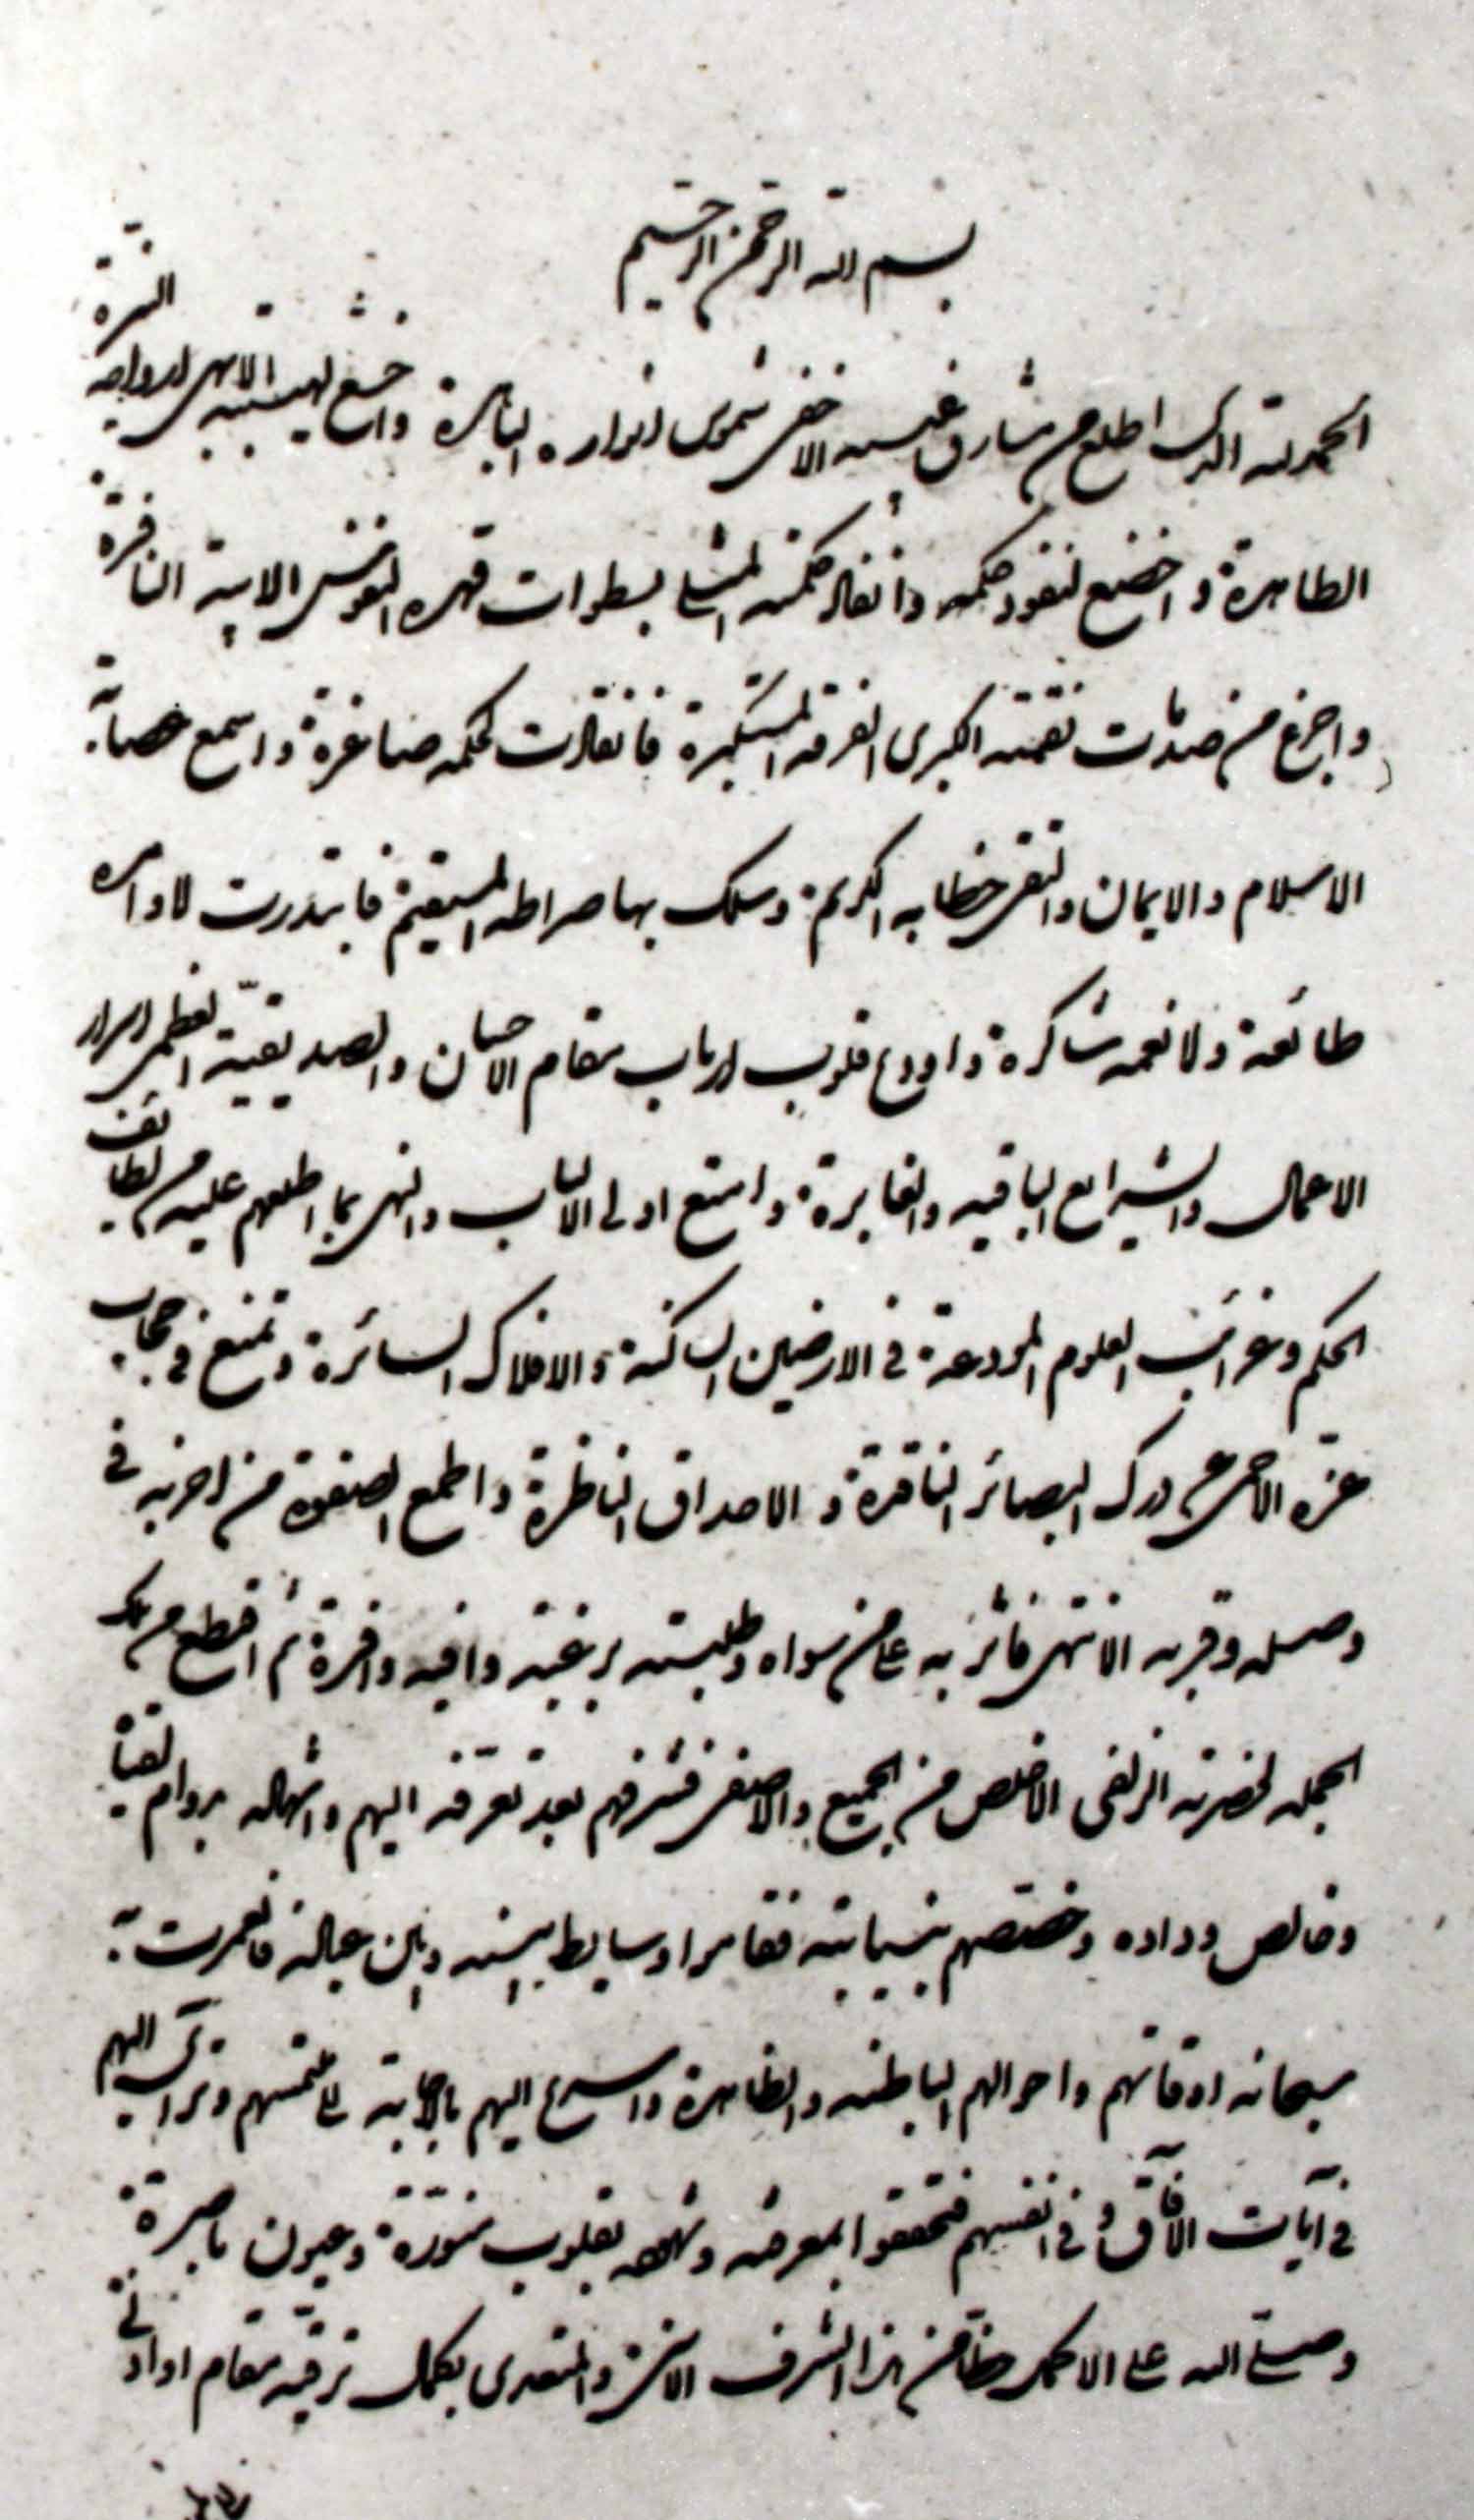 بسم الله الرحمن الرحيم
الحمد لله الذى اطلع من مشارق غيبه الاخفى شموس انواره الباهرة واخشع لهيبته الابهى ارواحه النيرة
الطاهرة واخضع لنفوذ حكمه وانفاذ حكمته المشا بسطوات قهره النفوس الابية النافرة
واجزع من صدمات نقمته الكبرى الفرقة المستكبرة فانقادت لحكمه صاغرة واسمع عصابة
الاسلام والايمان واتقى خطابه الكريم وسلك بها صراطه المستقيم فابتدرت لاوامره
طائعة ولانعمه شاكرة واودع قلوب ارباب مقام الاحسان والصديقية العظمى اسرار
الاعمال والشرايع الباقيه والغابرة وامتع اولى الالباب والنهى بما اطلعهم عليه من لطائف
الحكم وغرائب العلوم المودعة فى الارضين الساكنة والافلاك السائرة وتمنع فى حجاب
عزه الاحمى عن درك البصائر الناقدة والاحداق الناظرة واطمع الصفوة من احزبه فى
وصله وقربه الانتهى فاثر به عمن سواه وطلبته برغبة وافيه وافرة ثم اقتطع من تلك
الجملة لحضرته الزلفى الاخلص من الجميع والاصفى فشرفهم بعد تعرفه اليهم واشهاله بدوام لقياه
وخالص وداده وخصصهم بنيابته فقاموا وسايط بينه وبين عباله فانعمرت به
سبحانه اوقاتهم واحوالهم الباطنه والظاهرة واسرع اليهم بالاجابة لملتمسهم وتراآى اليهم
فى آيات الآفاق وفى انفسهم فتحققوا بمعرفته وشهوده بقلوب منورة وعيون باصرة
وصلى الله على الاكمل حظا من هذا الشرف الاسنى والمتعدى بكمال ترقيه مقام او ادنى